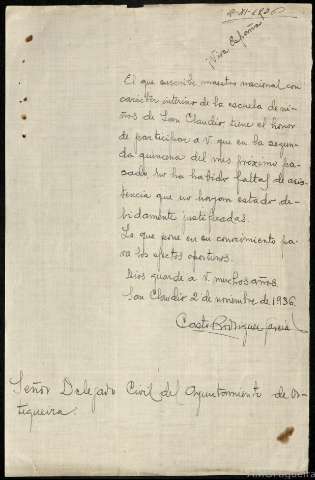 ¡Viva España
El que suscribe maestro nacional con
carácter interino de la escuela de ni-
ños de San Claudio tiene el honor
de participar a V. que en la segun-
da quincena del mes próximo pa-
sado no ha habido faltas de asis-
tencia que no hayan estado de-
bidamente justificadas.
Lo que pone en su conocimiento pa-
ra los efectos oportunos.
Dios guarde a V. muchos años.
San Claudio 2 de noviembre de 1936.
Casto Rodríguez García
Señor Delegado Civil del Ayuntamiento de Or-
tigueira.